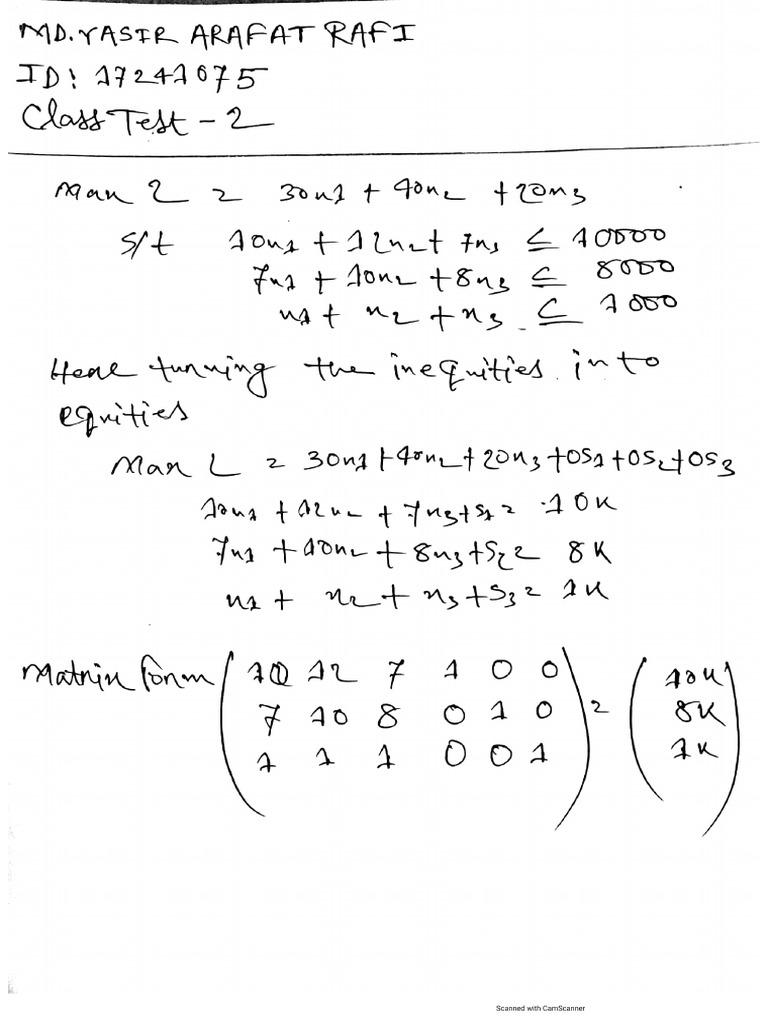 MD. YASIR ARAFAT RAFI
ID: 17241075
Class Test - 2
Max Z = 30x1 + 40x2 + 20x3
s/t 10x1 + 12x2 + 7x3 ≤ 10000
7x1 + 10x2 + 8x3 ≤ 8000
x1 + x2 + x3 ≤ 1000
Here turning the inequities into
equities
Max Z = 30x1 + 40x2 + 20x3 + 0S1 + 0S2 + 0S3
10x1 + 12x2 + 7x3 + S1 = 10K
7x1 + 10x2 + 8x3 + S2 = 8K
x1 + x2 + x3 + S3 = 1K
Matrix form ( 10 12 7 1 0 0 ) = ( 10K )
7 10 8 0 1 0 8K
1 1 1 0 0 1 1K
Scanned with CamScanner